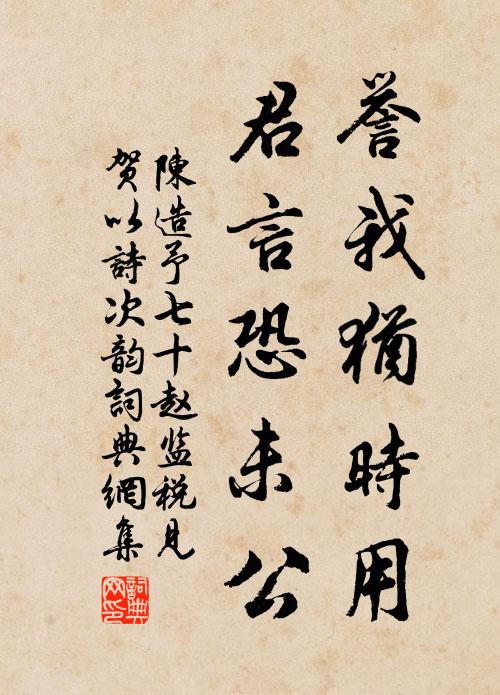 誉我猶時用
君言恐未公
陳造予七十赵监税見
贺以詩次韵詞典網集
詞典网印